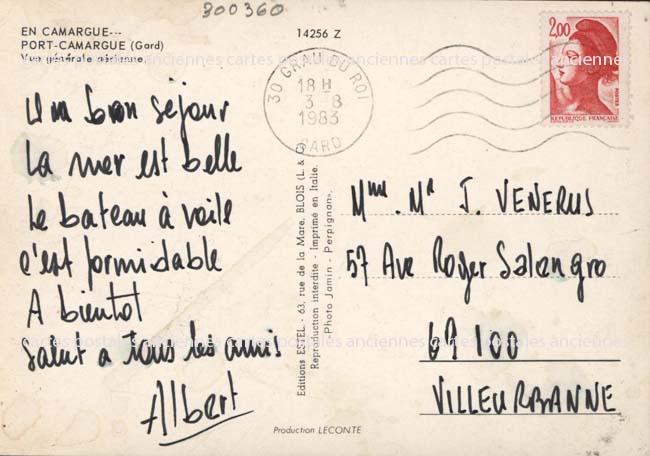 300360
EN CAMARGUE---
PORT-CAMARGUE (Gard)
Vue générale aérienne
14256 Z
30 GRAU DU ROI
18 H
3 - 8
1983
GARD
2,00
POSTES
REPUBLIQUE FRANÇAISE
cartes postales anciennes cartes postales anciennes cartes postales anciennes
Un bon séjour
La mer est belle
Le bateau à voile
c'est formidable
A bientot
Salut a tous les amis
Albert
Editions ESTEL - 63, rue de la Mare, BLOIS (L. & C.)
Reproduction interdite - Imprimé en Italie.
Photo Jamin - Perpignan
Mme. Mr J. VENERUS
57 Ave Roger Salengro
69 100
VILLEURBANNE
cartes postales anciennes cartes postales anciennes cartes postales anciennes
Production LECONTE